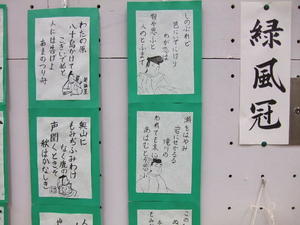 緑風冠
しのぶれど
色にいでにけり
わが恋は
物や思ふと
人のとふまで
わたの原
八十島かけて
こぎいでぬと
人には告げよ
あまのつり舟
瀬をはやみ
岩にせかるる
滝川の
われても末に
あはむとぞ思ふ
奥山に
もみぢふみわけ
なく鹿の
声聞くときぞ
秋はかなしき